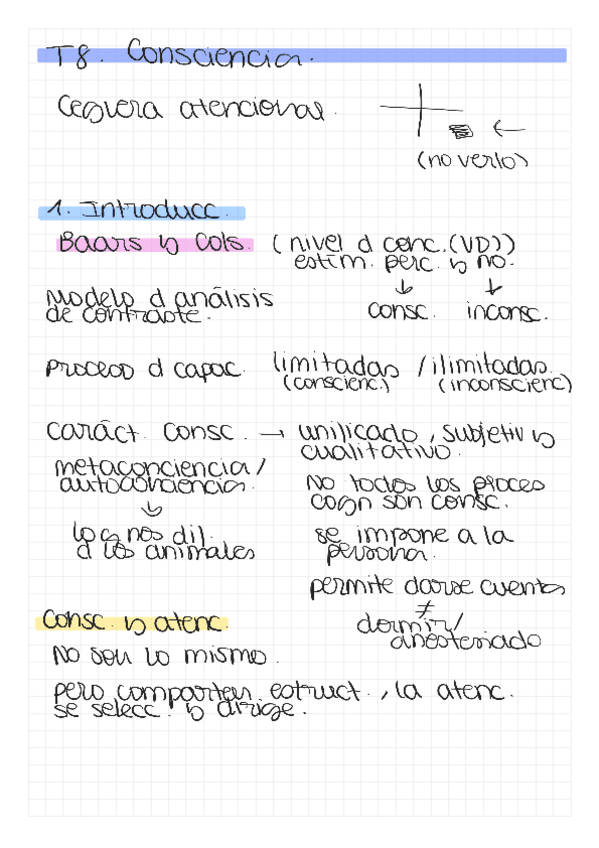 T8. Consciencia.
Ceguera atencional.
(no verlo)
1. Introducc.
Baars y Cols. (nivel d conc. (VD))
estím. perc. y no.
Modelo d análisis
de contraste.
consc. inconsc.
proceso d capac. limitadas / ilimitadas.
(conscienc.) (inconscienc)
caráct. consc. → unificado, subjetiv y
cualitativo.
metaconciencia/
autoconciencia.
No todos los proces
cogn son consc.
lo q nos dif.
d los animales
se impone a la
persona.
permite darse cuenta
≠
dormir/
anestesiado
Consc. y atenc.
No son lo mismo.
pero comparten estruct., la atenc.
se selecc. y dirige.